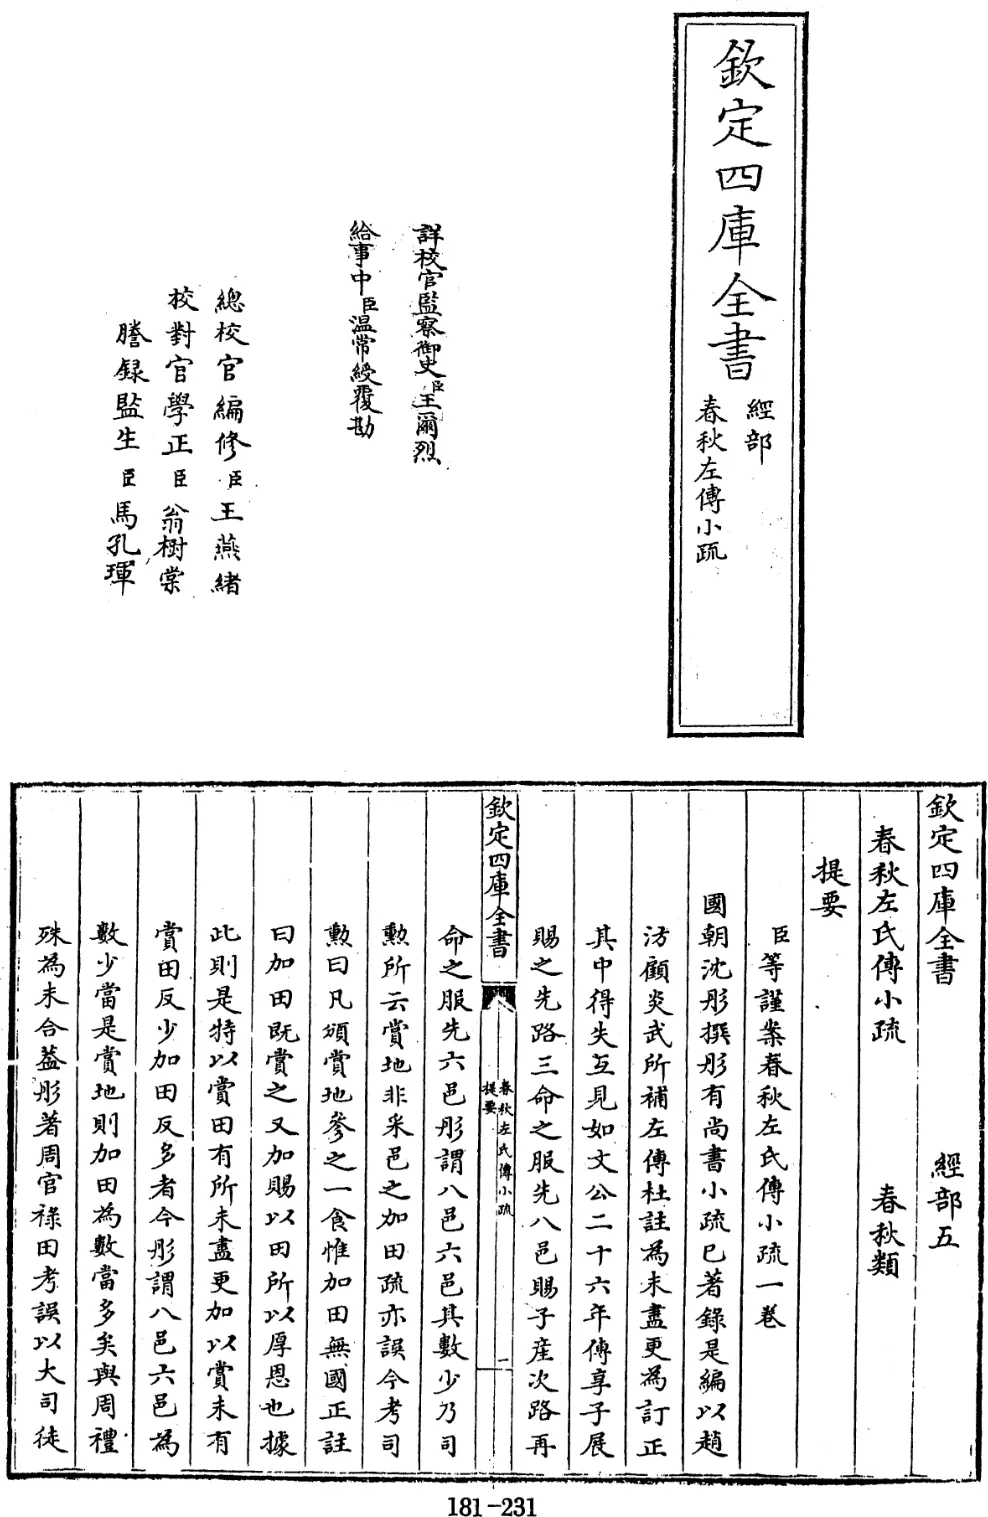 欽定四庫全書
經部
春秋左傳小疏
詳校官監察御史臣王爾烈
給事中臣温常綬覆勘
總校官編修臣王燕緒
校對官學正臣翁樹棠
謄録監生臣馬孔琿
欽定四庫全書 經部五
春秋左氏傳小疏 春秋類
提要
臣等謹案春秋左氏傳小疏一卷
國朝沈彤撰彤有尚書小疏已著錄是編以趙
汸顧炎武所補左傳杜註為未盡更為訂正
其中得失互見如文公二十六年傳享子展
賜之先路三命之服先八邑賜子産次路再
欽定四庫全書
春秋左氏傳小疏
提要
一
命之服先六邑彤謂八邑六邑其數少乃司
勲所云賞地非采邑之加田疏亦誤今考司
勲曰凡頒賞地參之一食惟加田無國正註
曰加田既賞之又加賜以田所以厚恩也據
此則是特以賞田有所未盡更加以賞未有
賞田反少加田反多者今彤謂八邑六邑為
數少當是賞地則加田為數當多矣與周禮
殊為未合葢彤著周官禄田考誤以大司徒
181-231